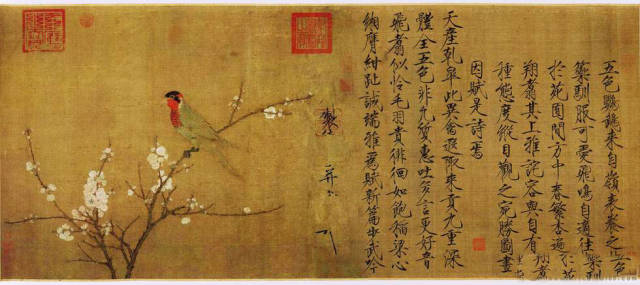 五色鸚鵡來自嶺表養之
禦馴服可愛飛鳴自適往
於苑囿間方中春繁杏遍
翔翥其上雅詫容與自有
種態度縱目觀之宛勝圖畫
因賦是詩焉
天產乾皋此異禽遐陬來貢九重深
體全五色非凡質惠吐多言更好音
飛翥似憐毛羽貴徘徊如飽稻粱心
緗膺紺趾誠端雅為賦新篇步武吟